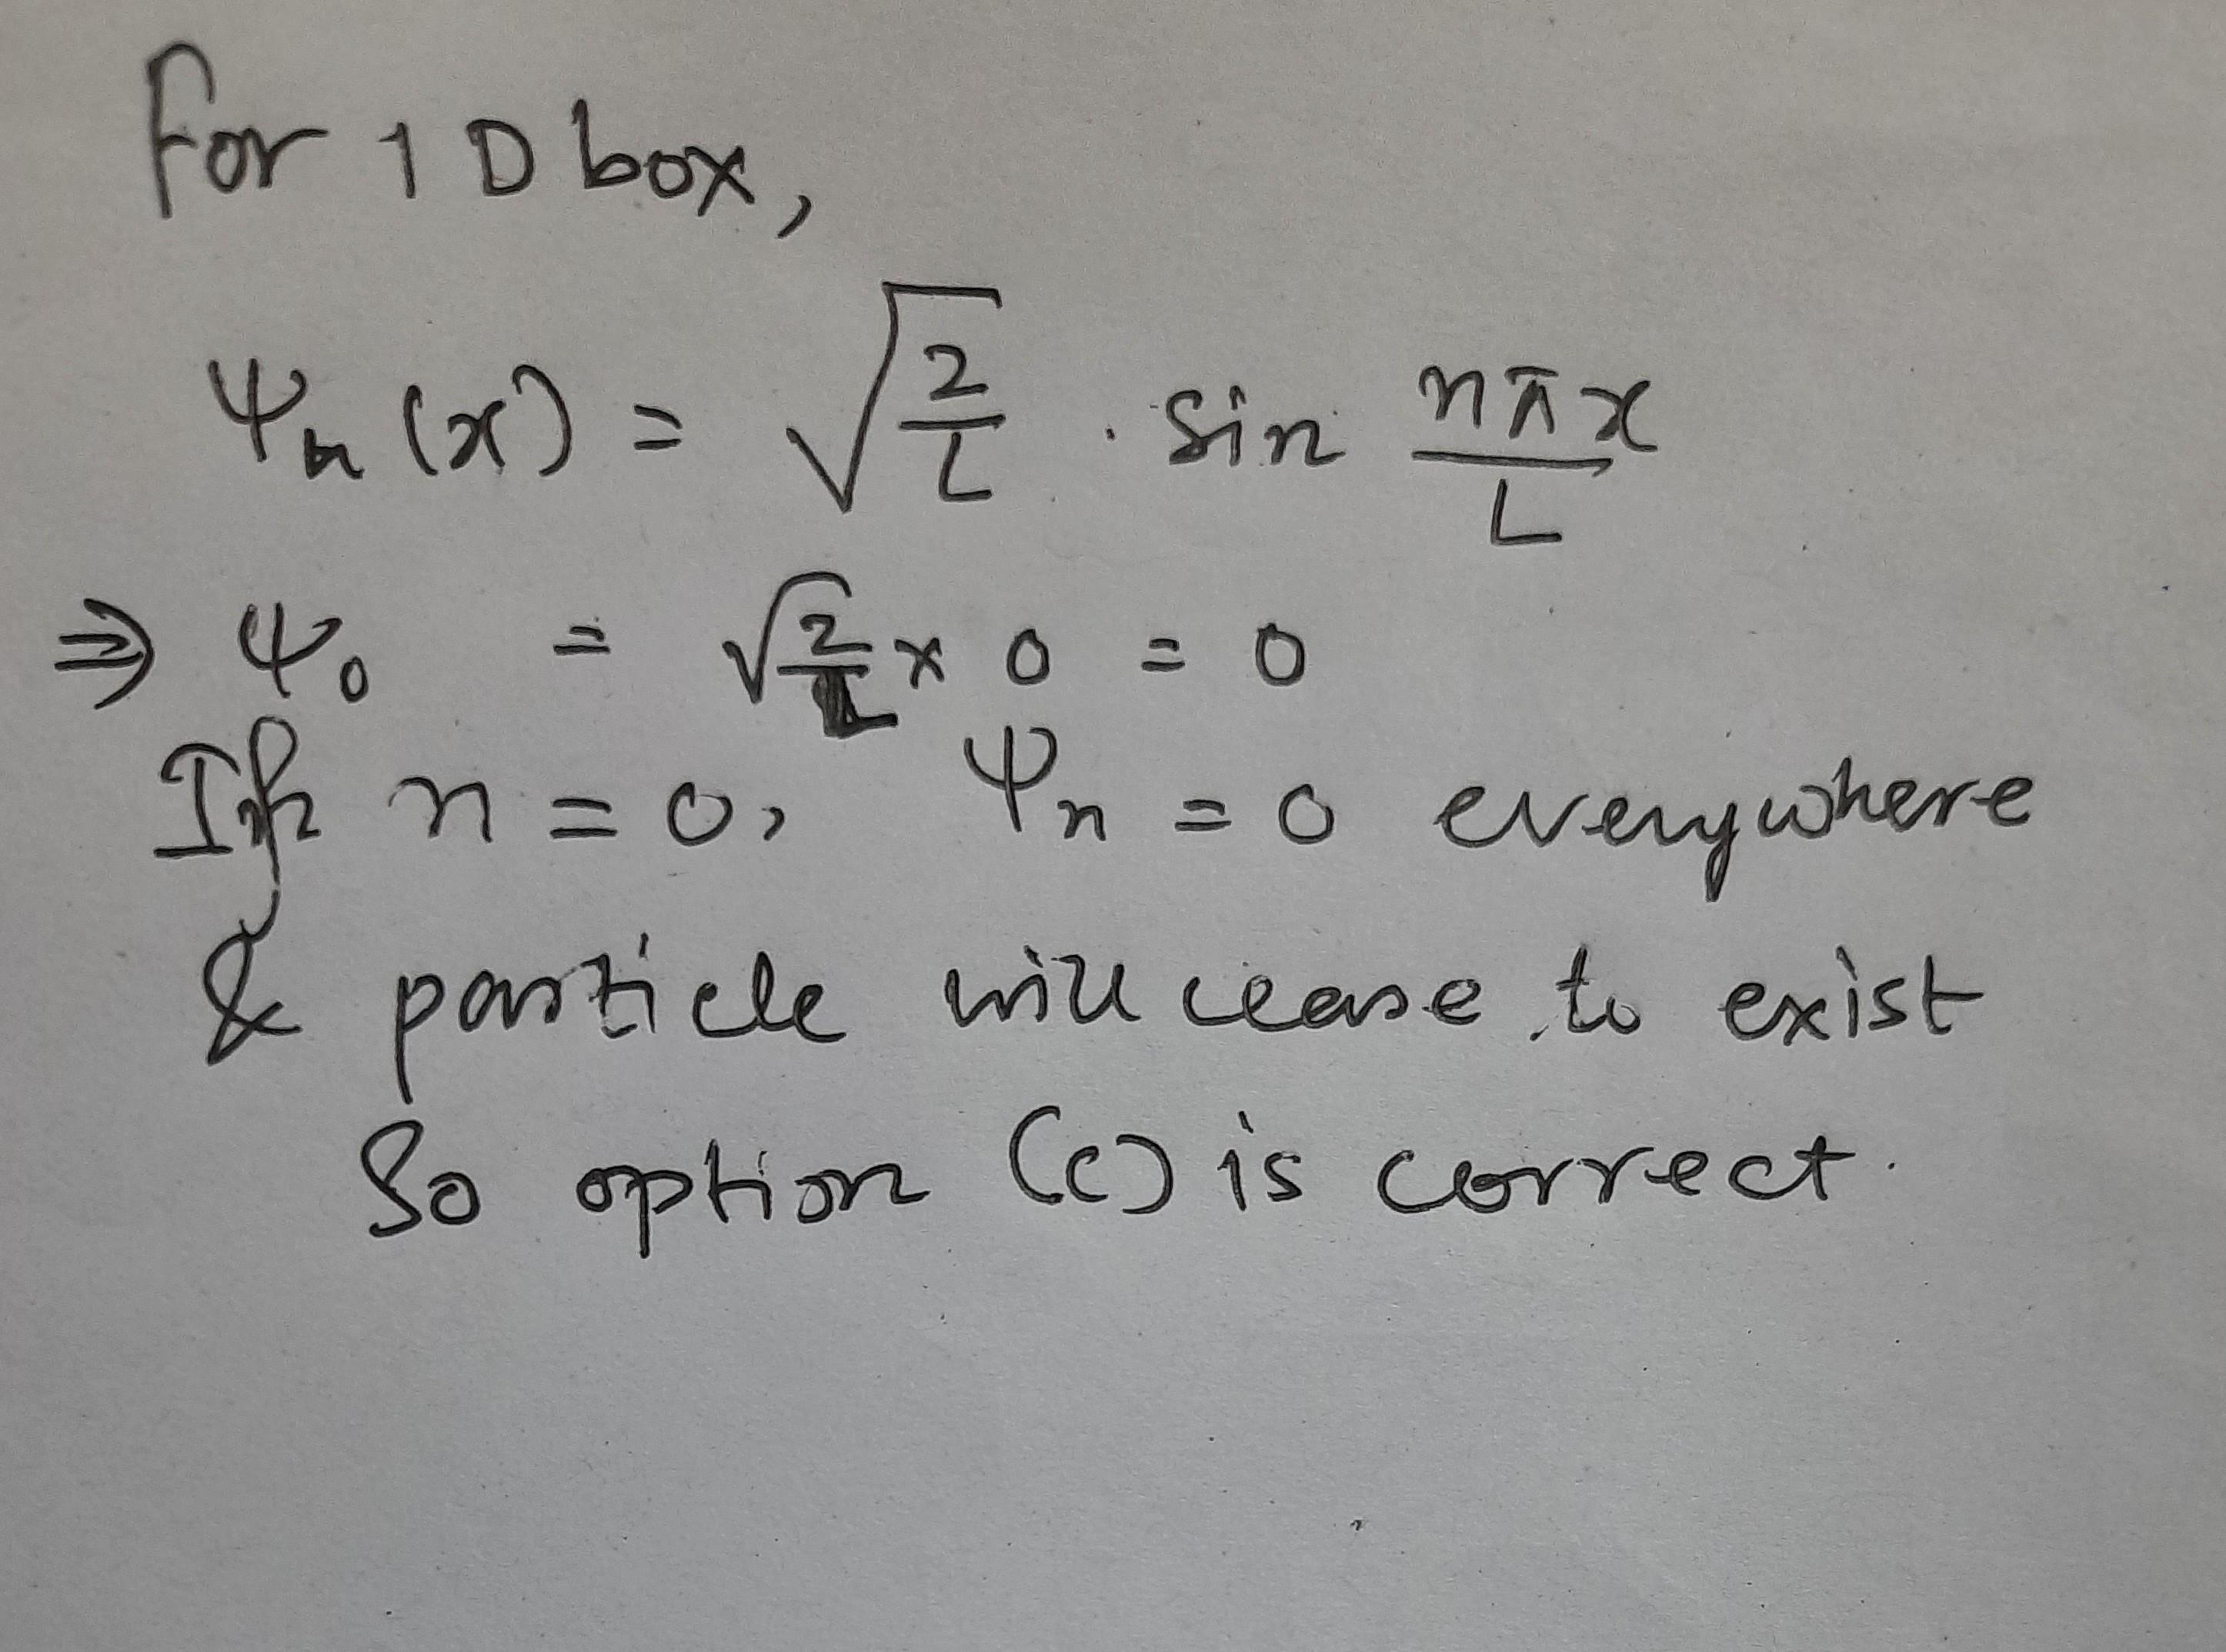 For 1D box,
Ψn(x) = √(2/L) . Sin nπx/L
⇒ Ψ0 = √(2/L) × 0 = 0
If n = 0, Ψn = 0 everywhere
& particle will cease to exist
So option (c) is correct.